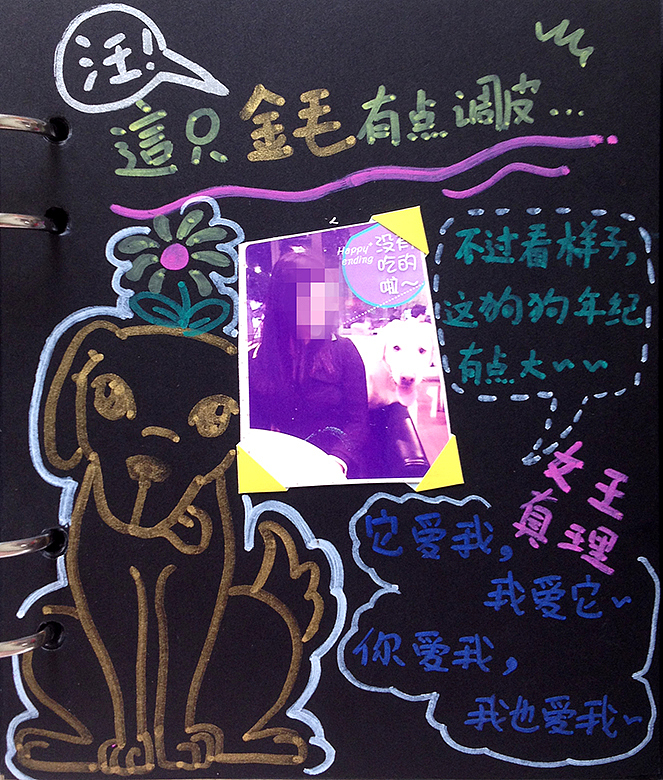 汪!
這只金毛有点调皮...
Happy
ending
没有
吃的
啦～
不过看样子,
这狗狗年纪
有点大~~
女王
真理
它爱我,
我爱它~
你爱我,
我也爱我~